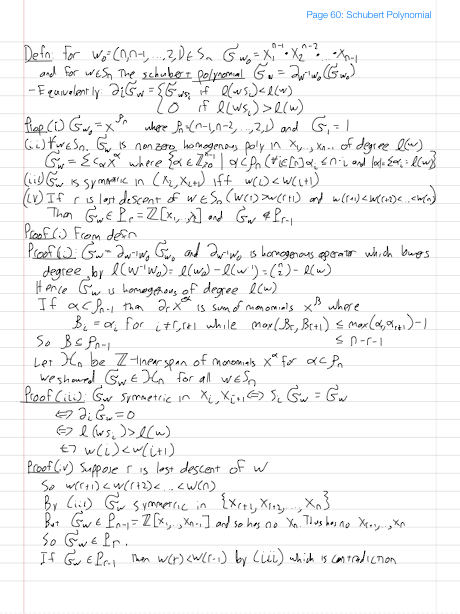 Page 60: Schubert Polynomial
Defn: For w₀=(n,n-1,...,2,1)∈Sₙ 𝔖_w₀=x₁ⁿ⁻¹x₂ⁿ⁻²...xₙ₋₁
and for w∈Sₙ The schubert polynomial 𝔖_w=∂_{w⁻¹w₀}(𝔖_w₀)
- Equivalently: ∂ᵢ𝔖_w={𝔖_{wsᵢ} if ℓ(wsᵢ)<ℓ(w)
0 if ℓ(wsᵢ)>ℓ(w)
Prop (i) 𝔖_w₀=x^{ρₙ} where ρₙ=(n-1,n-2,...,2,1) and 𝔖₁=1
(ii) ∀w∈Sₙ 𝔖_w is nonzero homogenous poly in x₁,...,xₙ₋₁ of degree ℓ(w)
𝔖_w=Σc_αx^α where {α∈ℤⁿ⁻¹≥0 | α⊂ρₙ (∀i∈[n] αᵢ≤n-i and |α|=Σαᵢ=ℓ(w)}
(iii) 𝔖_w is symmetric in (xᵢ,xᵢ₊₁) iff w(i)<w(i+1)
(iv) If r is last descent of w∈Sₙ (w(r)>w(r+1) and w(r+1)<w(r+2)<...<w(n))
Then 𝔖_w∈Pᵣ=ℤ[x₁,...,xᵣ] and 𝔖_w∉Pᵣ₋₁
Proof(i) From defn
Proof(ii): 𝔖_w=∂_{w⁻¹w₀}𝔖_w₀ and ∂_{w⁻¹w₀} is homogenous operator which lowers
degree by ℓ(w⁻¹w₀)=ℓ(w₀)-ℓ(w⁻¹)=(n 2)-ℓ(w)
Hence 𝔖_w is homogenous of degree ℓ(w)
If α⊂ρₙ₋₁ then ∂ᵣx^α is sum of monomials x^β where
βᵢ=αᵢ for i≠r,r+1 while max(βᵣ,βᵣ₊₁)≤max(αᵣ,αᵣ₊₁)-1
So β⊆ρₙ₋₁ ≤n-r-1
Let ℋₙ be ℤ-linear span of monomials x^α for α⊂ρₙ
we showed 𝔖_w∈ℋₙ for all w∈Sₙ
Proof(iii): 𝔖_w symmetric in xᵢ,xᵢ₊₁⇔sᵢ𝔖_w=𝔖_w
⇔∂ᵢ𝔖_w=0
⇔ℓ(wsᵢ)>ℓ(w)
⇔w(i)<w(i+1)
Proof(iv) Suppose r is last descent of w
So w(r+1)<w(r+2)<...<w(n)
By (iii) 𝔖_w symmetric in {xᵣ₊₁,xᵣ₊₂,...,xₙ}
But 𝔖_w∈Pₙ₋₁=ℤ[x₁,...,xₙ₋₁] and so has no xₙ. Thus has no xᵣ₊₁,...,xₙ
So 𝔖_w∈Pᵣ.
If 𝔖_w∈Pᵣ₋₁ Then w(r)<w(r-1) by (iii) which is contradiction